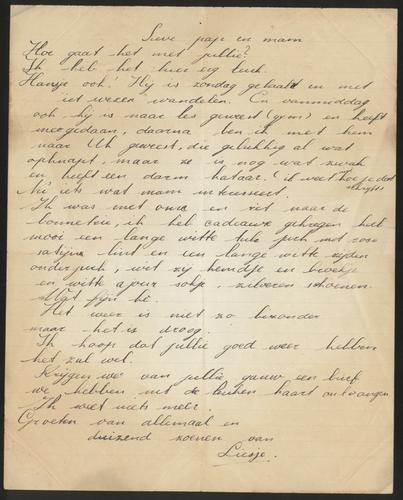 Lieve paps en mam
Hoe gaat het met jullie?
Ik heb het hier erg leuk.
Hansje ook! Hij is zondag gehaald en met
iet wezen wandelen. En vanmiddag
ook. hij is naar les geweest (gym) en heeft
meegedaan, daarna ben ik met hem
naar geweest, die gelukkig al wat
opknapt, maar ze is nog wat zwak
en heeft een darm kataar. (ik weet hoe je dat
schrijft)
Nú iets wat mam interesseert.
Ik was met en riet naar de
bonnetrie, ik heb cadeaux gekregen heel
mooi een lange witte tule jurk met rose
satijn lint en een lange witte zijden
onderjurk, wit zij hemdje en broekje
en witte ajour sokje, zilveren schoenen.
Wat fijn hè.
Het weer is niet zo bizonder
maar het is droog.
Ik hoop dat jullie goed weer hebben
het zal wel.
Krijgen we van jullie gauw een brief
we hebben uit de keuken kaart ontvangen
Ik weet niets meer.
Groeten van allemaal en
duizend zoenen van
Liesje.